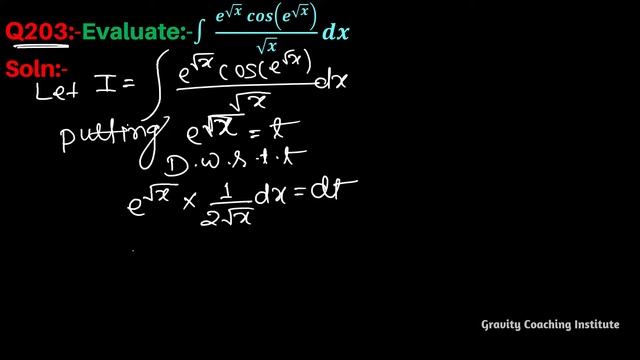 Q203:-Evaluate:- ∫ e^√x cos(e^√x)/√x dx
Soln:-
Let I = ∫ e^√x cos(e^√x)/√x dx
putting e^√x = t
D.w.r.t.t
e^√x × 1/2√x dx = dt
Gravity Coaching Institute